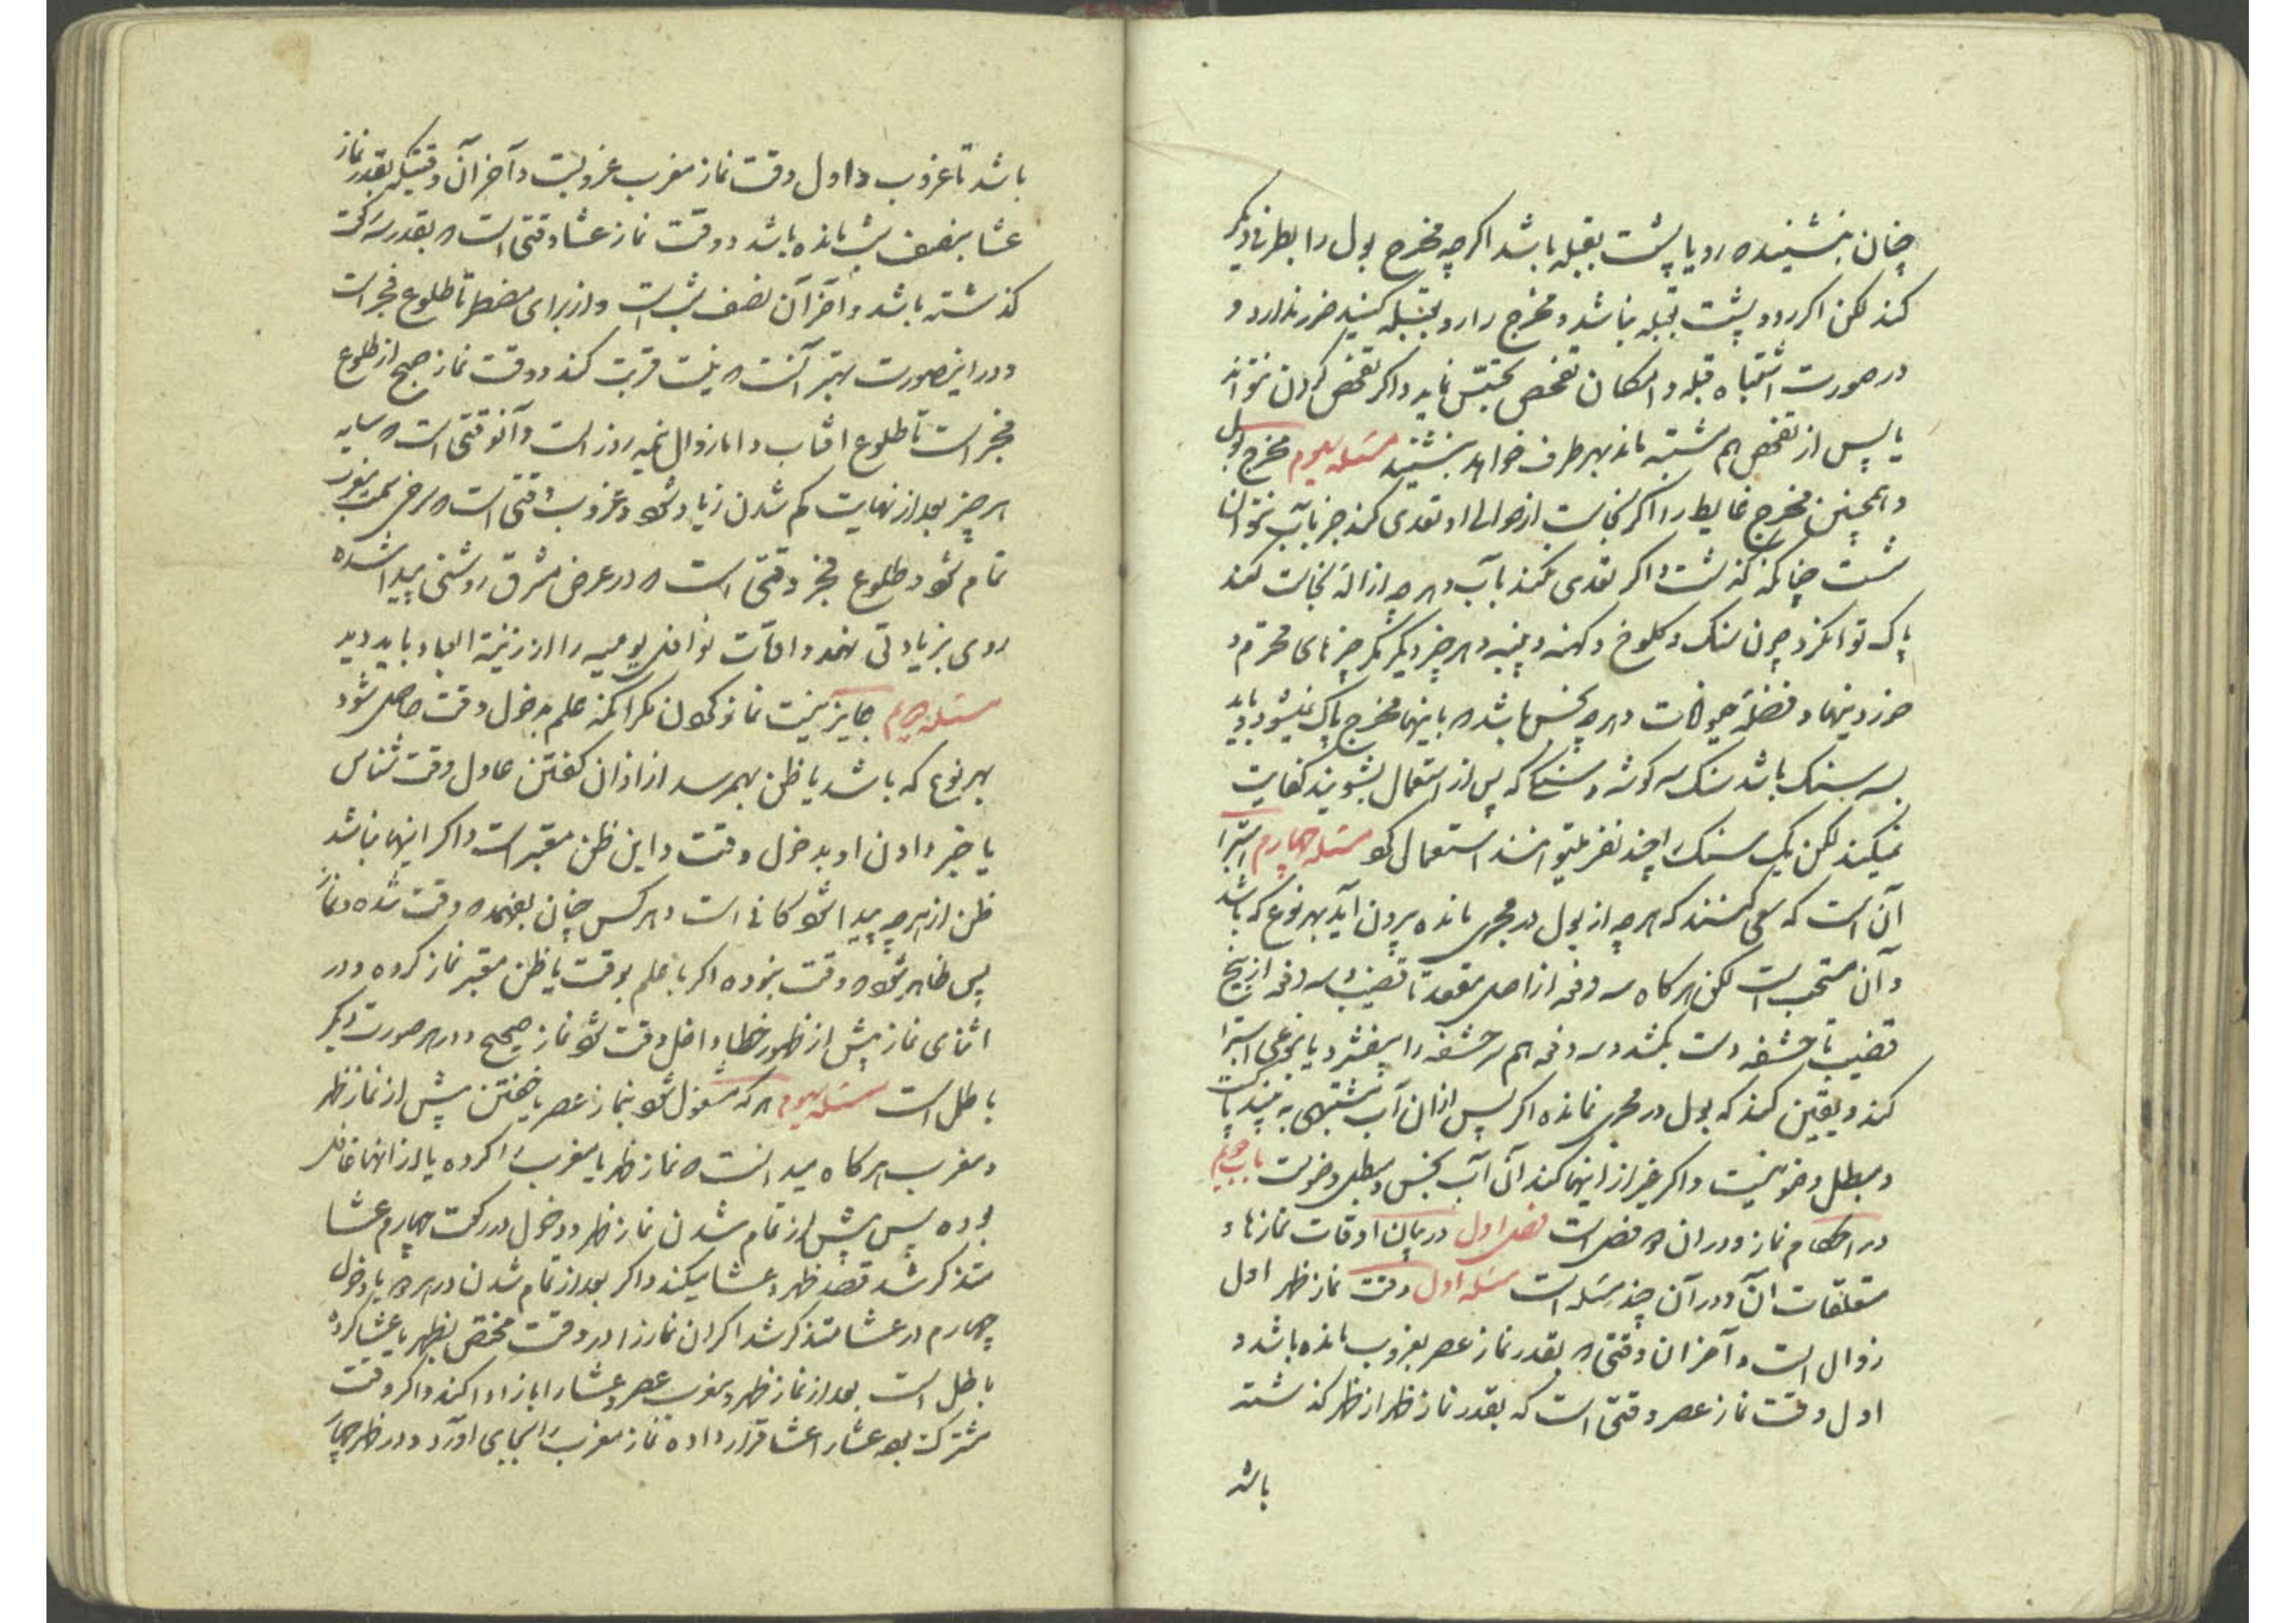 چنان بنشیند که رو یا پشت بقبله باشد اکرچه مخرج بول را بطرف دیکر
کند لکن اکر رو و پشت بقبله نباشد و مخرج را رو بقبله کنید ضرر ندارد و
در صورت اشتباه قبله و امکان تفحص تجسّس نماید و اکر تفحص کردن نتواند
یا پس از تفحص هم مشتبه ماند بهر طرف خواهد بنشیند مسئله سوم مخرج بول
و همچنین مخرج غایط را اکر نجاست از حوالی او تعدی کند جز بآب نتوان
شست چنانکه کذشت و اکر تعدی نکند بآب و هر چه ازالهٔ نجاست کند
پاک توان کرد چون سنک و کلوخ و کهنه و پنبه و هر چیز دیکر مکر چیزهای محترم و
خوردنیها و فضلهٔ حیوانات و هر چه نجس باشد که باینها مخرج پاک نمیشود و باید
بسه سنک باشد سنک سه کوشه و سنکی که پس از استعمال بشویند کفایت
نمیکند لکن یک سنک را چند نفر میتوانند استعمال کرد مسئله چهارم استبرا
آن است که سعی کنند که هر چه از بول در مجری مانده بیرون آید بهر نوع که باشد
و آن مستحب است لکن هر کاه سه دفعه از اصل مقعد تا قضیب و سه دفعه از بیخ
قضیب تا حشفه دست بکشد و سه دفعه هم سر حشفه را بیفشرد یا بنوعی استبرا
کند و یقین کند که بول در مجری نمانده اکر پس از ان آب مشتبهی به بیند پاک است
و مبطل وضو نیست و اکر غیر از اینها کند آن آب نجس و مبطل وضوست باب
در احکام نماز و در ان فصل است فصل اول در بیان اوقات نمازها و
متعلقات آن و در آن چند مسئله است مسئله اول وقت نماز ظهر اول
زوال است و آخر ان وقتی که بقدر نماز عصر بغروب مانده باشد و
اول وقت نماز عصر وقتی است که بقدر نماز ظهر از ظهر کذشته
باشد
باشد تا غروب و اول وقت نماز مغرب غروبست و آخر آن وقتیکه بقدر نماز
عشا بنصف شب مانده باشد و وقت نماز عشا وقتی است که بقدر سه رکعت
کذشته باشد و آخر آن نصف شب است و از برای مضطر تا طلوع فجر است
و در اینصورت بهتر آنست که نیت قربت کند و وقت نماز صبح از طلوع
فجر است تا طلوع افتاب و اما زوال نیمه روز است و آنوقتی است که سایه
هر چیز بعد از نهایت کم شدن زیاد شود و غروب وقتی است که سرخی سمت مغرب
تمام شود و طلوع فجر وقتی است که در عرض مشرق روشنی پیدا شده
روی بزیادتی نهد و اوقات نوافل یومیه را از زینة العباد باید دید
مسئله دویم جایز نیست نماز کردن مکر انکه علم بدخول وقت حاصل شود
بهر نوع که باشد یا ظن بهمرسد از اذان کفتن عادل وقت شناس
یا خبر دادن او بدخول وقت و این ظن معتبر است و اکر اینها نباشد
ظن از هر چه پیدا شود کافی است و هر کس چنان بفهمد که وقت شده و نماز
پس ظاهر شود که وقت نبوده اکر با علم بوقت یا ظن معتبر نماز کرده و در
اثنای نماز پیش از ظهور خطا داخل وقت شود نماز صحیح و در هر صورت دیکر
باطل است مسئله سوم هر که مشغول شود بنماز عصر یا خفتن پیش از نماز ظهر
و مغرب هر کاه میدانست که نماز ظهر یا مغرب را کرده یا از انها غافل
بوده پس پیش از تمام شدن نماز ظهر و دخول در رکعت چهارم عشا
متذکر شد قصد ظهر و عشا میکند و اکر بعد از تمام شدن در هر دو یا دخول
چهارم در عشا متذکر شد اکر ان نماز را در وقت مختص بظهر یا عشا کرده
باطل است بعد از نماز ظهر و مغرب عصر و عشا را باز ادا کند و اکر وقت
مشترک بود عشا را عشا قرار داده نماز مغرب را بجای اورد و در ظهر چهار